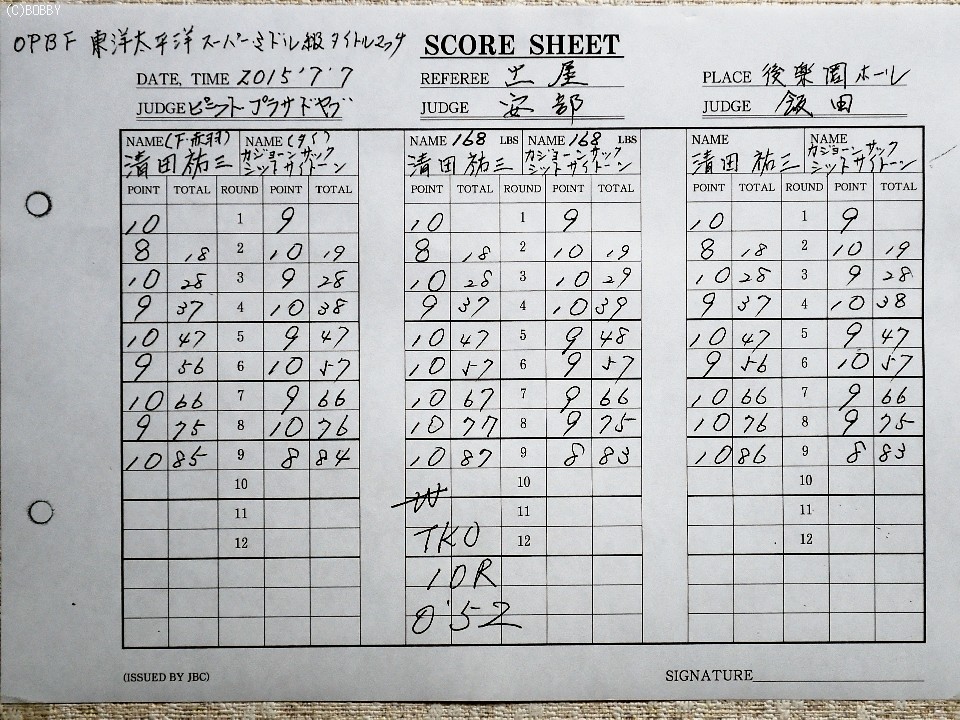 (C)BOBBY
OPBF 東洋太平洋 スーパーミドル級 タイトルマッチ SCORE SHEET
DATE, TIME 2015'7'7 REFEREE 土屋 PLACE 後楽園ホール
JUDGE ピニット プラヤドサブ JUDGE 安部 JUDGE 飯田
NAME (下・赤羽) NAME (タイ) NAME 168 LBS NAME 168 LBS NAME NAME
清田祐三 カジョーンサック シットサイトーン 清田祐三 カジョーンサック シットサイトーン 清田祐三 カジョーンサック シットサイトーン
POINT TOTAL ROUND POINT TOTAL POINT TOTAL ROUND POINT TOTAL POINT TOTAL ROUND POINT TOTAL
10 1 9 10 1 9 10 1 9
8 18 2 10 19 8 18 2 10 19 8 18 2 10 19
10 28 3 9 28 10 28 3 10 29 10 28 3 9 28
9 37 4 10 38 9 37 4 10 39 9 37 4 10 38
10 47 5 9 47 10 47 5 9 48 10 47 5 9 47
9 56 6 10 57 10 57 6 9 57 9 56 6 10 57
10 66 7 9 66 10 67 7 9 66 10 66 7 9 66
9 75 8 10 76 10 77 8 9 75 10 76 8 9 75
10 85 9 8 84 10 87 9 8 83 10 86 9 8 83
10 10 10
11 W 11 11
12 TKO 12 12
10R
0'52
(ISSUED BY JBC) SIGNATURE